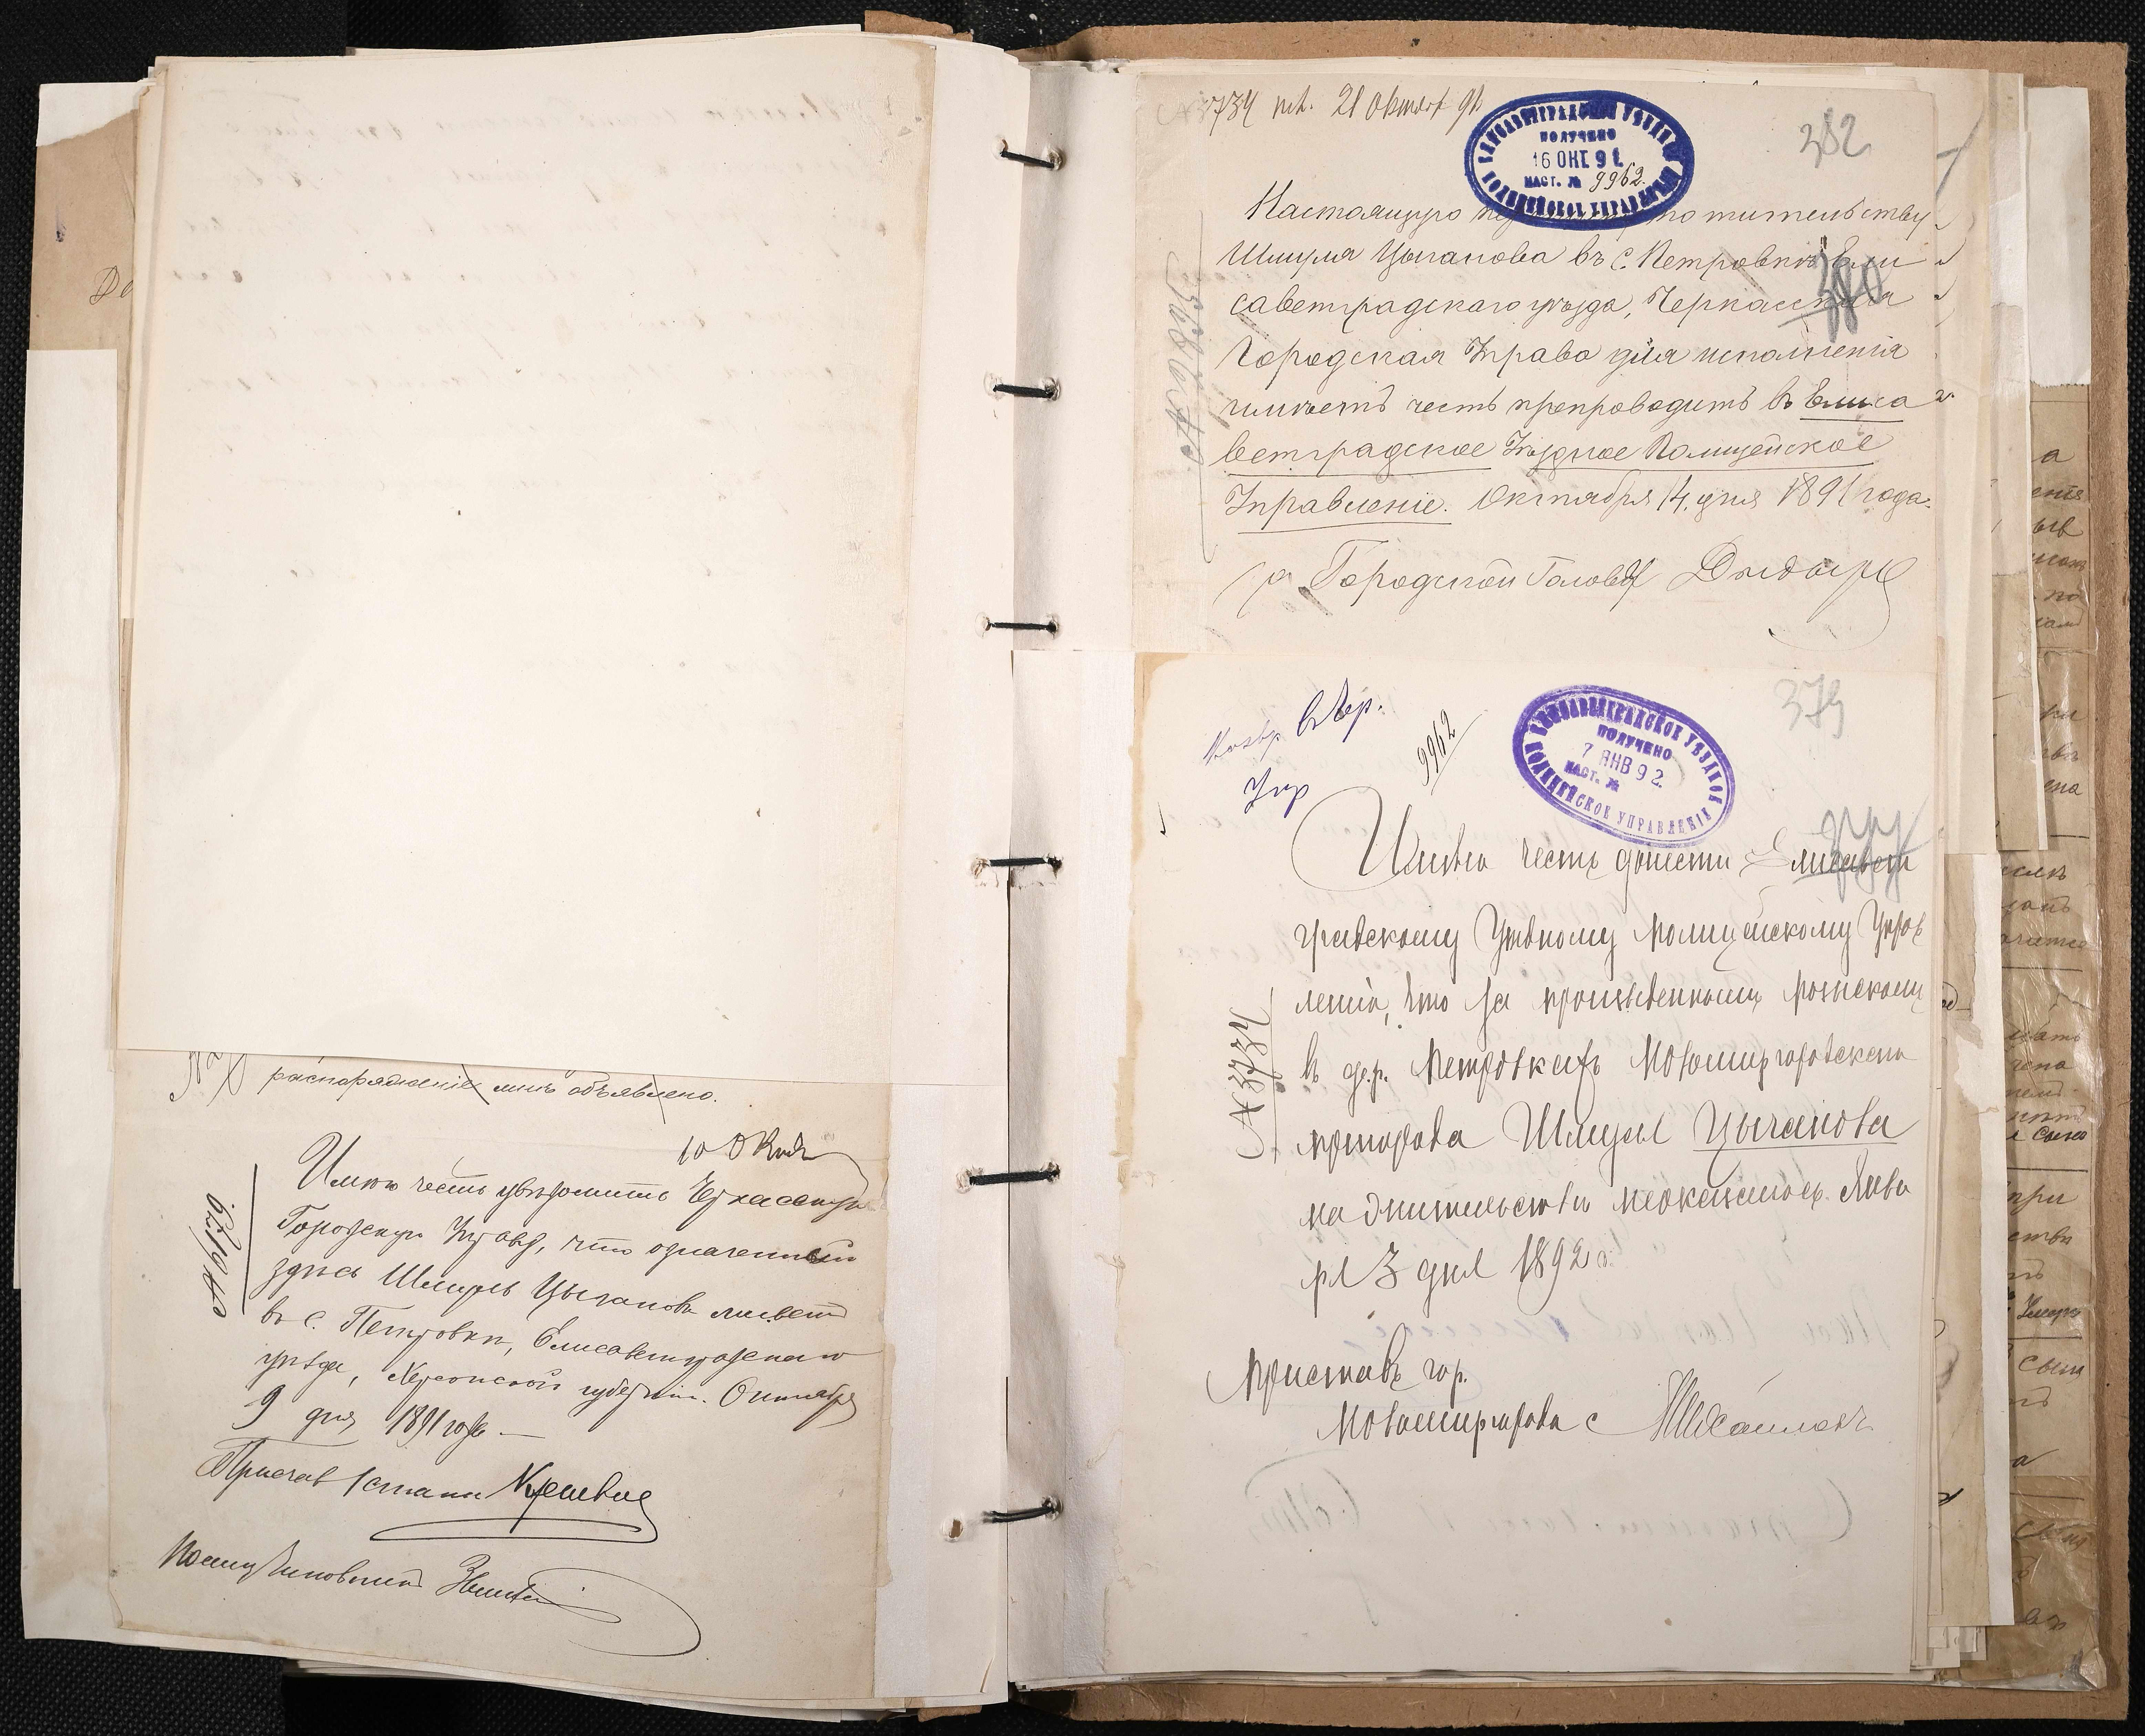 распоряженіе мнѣ объявлено.
10 Окт
Имѣю честь увѣдомить Черкасскую
Городскую Управу, что означенный
здѣсь Шмуль Цыгановъ живетъ
въ с. Петровкѣ, Елисаветградскаго
уѣзда, Херсонской губерніи. Октября
9 дня 1891 года
Приставъ 1 стана
№ 3734 пол. 21 Октяб 91
382
ЕЛИСАВЕТГРАДСКОЕ УѢЗДНОЕ
ПОЛУЧЕНО
16 ОКТ. 91.
НАСТ. № 9962.
ПОЛИЦЕЙСКОЕ УПРАВЛЕНІЕ
Настоящую жительству
Шмуля Цыганова въ с. Петровкѣ Ели
380
саветградскаго уѣзда, Черкасская
Городская Управа для исполненія
имѣетъ честь препроводить въ Елиса
ветградское Уѣздное Полицейское
Управленіе. Октября 14 дня 1891 года.
Городской Голова
379
въ Гор.
Упр
9962
ЕЛИСАВЕТГРАДСКОЕ УѢЗДНОЕ
ПОЛУЧЕНО
7 ЯНВ 92.
НАСТ. №
ПОЛИЦЕЙСКОЕ УПРАВЛЕНІЕ
Имѣю честь донести Елисавет
градскому Уѣздному Полицейскому Управ
ленію, что по произведенному розыскому
въ дер. Петровкѣ Новомиргородскаго
№ 3734
пригорода Шмуля Цыганова
на жительствѣ неоказалось. Янва
ря 3 дня 1892 г.
Приставъ гор.
Новомиргорода